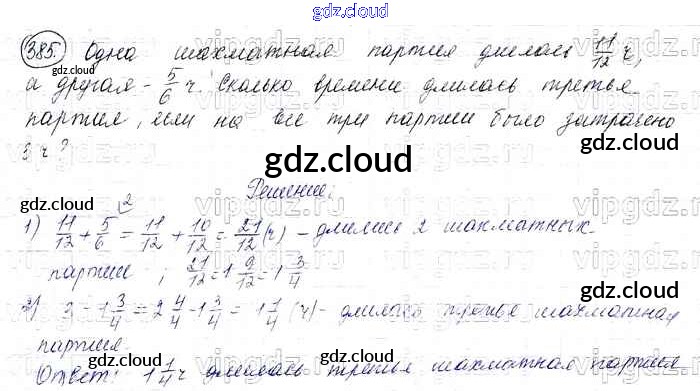 gdz.cloud
385. Одна шахматная партия длилась 11/12 ч,
gdz.cloud
а другая - 5/6 ч. Сколько времени длилась третья
партия, если на все три партии было затрачено
3 ч?
gdz.cloud
Решение:
1) 11/12 + 5/6 = 11/12 + 10/12 = 21/12 (ч) - длились 2 шахматных
партии ; 21/12 = 1 9/12 = 1 3/4
2) 3 - 1 3/4 = 2 4/4 - 1 3/4 = 1 1/4 (ч) - длилась третья шахматная
партия.
Ответ: 1 1/4 ч длилась третья шахматная партия
gdz.cloud
gdz.cloud
gdz.cloud
gdz.cloud
vipgdz.ru